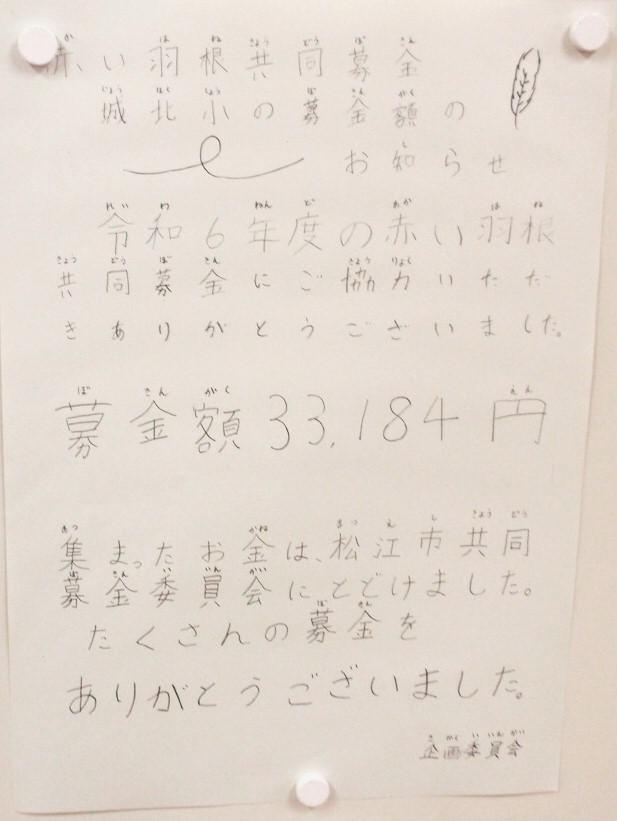 赤い羽根共同募金
城北小の募金額の
お知らせ
令和6年度の赤い羽根
共同募金にご協力いただ
きありがとうございました。
募金額33,184円
集まったお金は、松江市共同
募金委員会にとどけました。
たくさんの募金を
ありがとうございました。
企画委員会